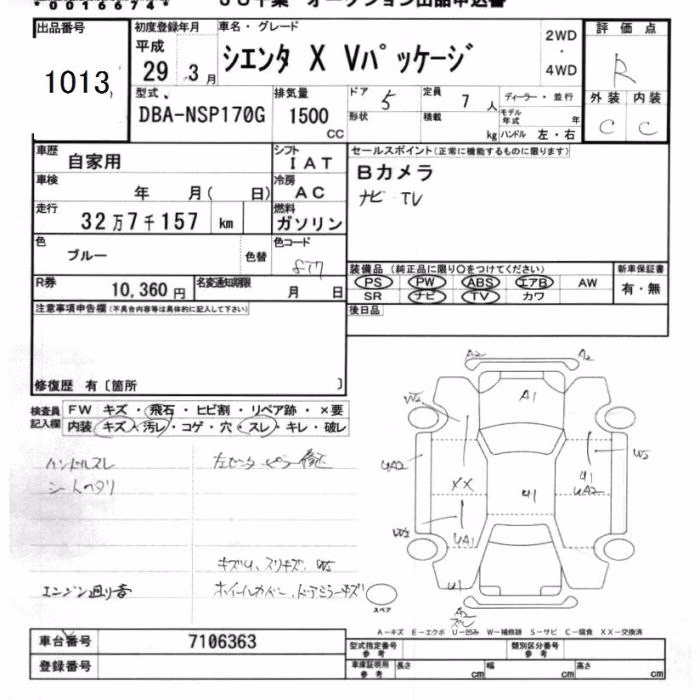 *00166744*
JU千葉 オークション出品申込書
出品番号
1013
初度登録年月
平成
29年3月
車名・グレード
シエンタ X Vパッケージ
2WD
・
4WD
評価点
R
外装 内装
C C
型式
DBA-NSP170G
排気量
1500
CC
ドア 5
形状
定員 7 人
積載 kg
ディーラー・並行
モデル年式 年
ハンドル 左・右
車歴
自家用
シフト
IAT
車検
年 月( 日)
冷房
AC
走行
32万7千157 km
燃料
ガソリン
色
ブルー
色替
色コード
8T7
R券
10,360円
名変通知期限
月 日
セールスポイント(正常に機能するものに限ります)
Bカメラ
ナビ TV
装備品(純正品に限り○をつけてください)
PS PW ABS エアB AW
SR ナビ TV カワ
新車保証書
有・無
後日品
注意事項申告欄(不具合内容等は具体的に記入して下さい)
修復歴 有〔箇所 〕
検査員記入欄
FW キズ・飛石・ヒビ割・リペア跡・×要
内装 キズ・汚レ・コゲ・穴・スレ・キレ・破レ
ハンドルスレ
シートヘタリ
左センターピラー修正
キズU、スリキズ、W5
エンジン廻り音
ホイールカバー、ドアミラーキズ
A2
A2
A1
W2
UA2
XX
U1
U1
UA2
W2
W2
UA1
U1
A2
ズレ
スペア
A-キズ E-エクボ U-凹み W-補修跡 S-サビ C-腐食 XX-交換済
車台番号
7106363
登録番号
型式指定番号
参考
類別区分番号
参考
車庫証明用
参考
長さ cm
幅 cm
高さ cm